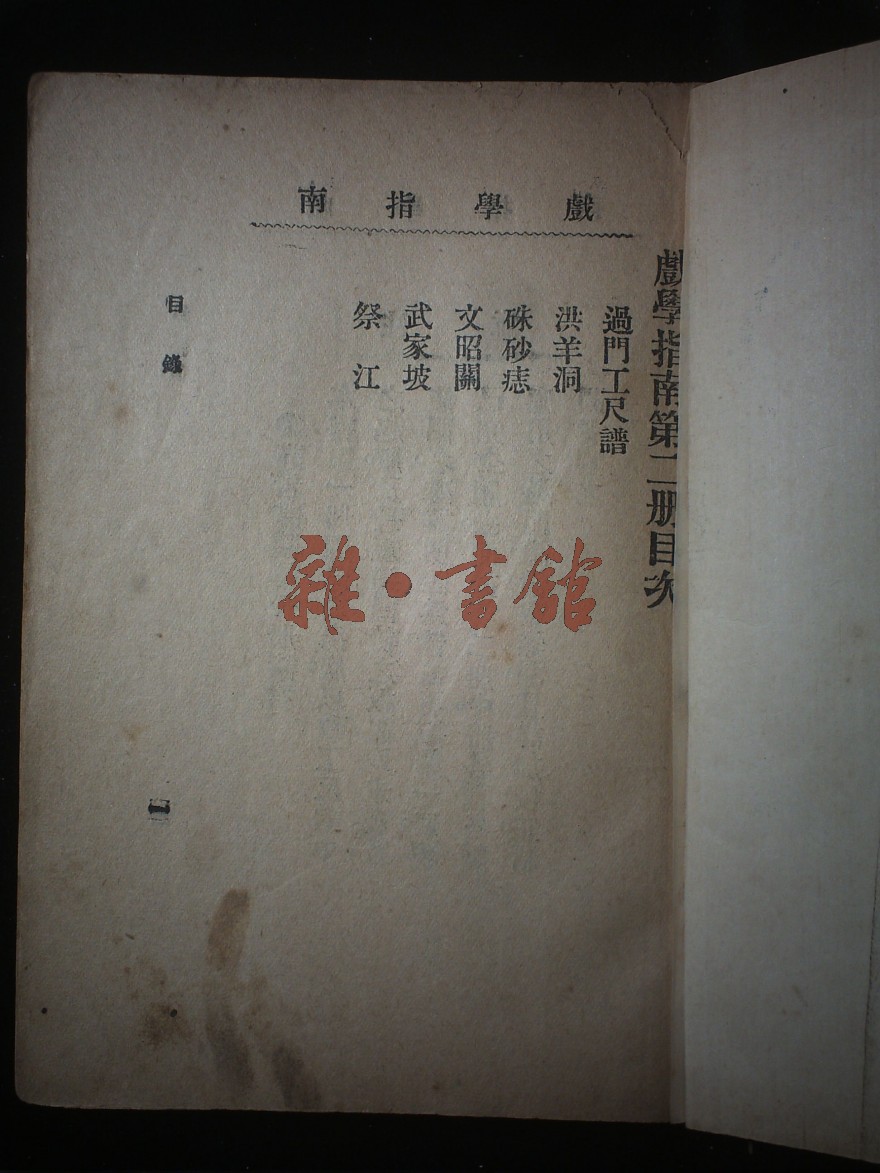 戲學指南
戲學指南第二册目次
過門工尺譜
洪羊洞
硃砂痣
文昭關
武家坡
祭江
目錄
一
雜·書館